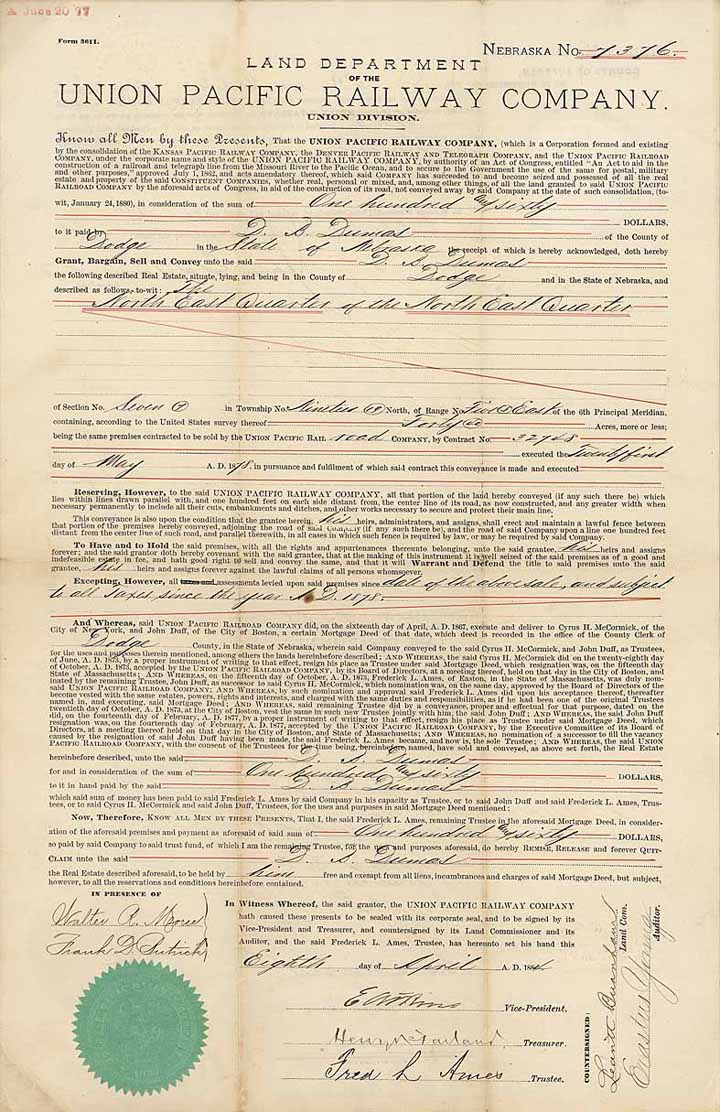 June 20 77
Form 3611.
NEBRASKA No. 7376.
LAND DEPARTMENT
OF THE
UNION PACIFIC RAILWAY COMPANY.
UNION DIVISION.
Know all Men by these Presents, That the UNION PACIFIC RAILWAY COMPANY, (which is a Corporation formed and existing
by the consolidation of the KANSAS PACIFIC RAILWAY COMPANY, the DENVER PACIFIC RAILWAY AND TELEGRAPH COMPANY, and the UNION PACIFIC RAILROAD
COMPANY, under the corporate name and style of the UNION PACIFIC RAILWAY COMPANY, by authority of an Act of Congress, entitled "An Act to aid in the
construction of a railroad and telegraph line from the Missouri River to the Pacific Ocean, and to secure to the Government the use of the same for postal, military
and other purposes," approved July 1, 1862, and acts amendatory thereof, which said COMPANY has succeeded to and become seized and possessed of all the real
estate and property of the said CONSTITUENT COMPANIES, whether real, personal or mixed, and, among other things, of all the land granted to said UNION PACIFIC
RAILROAD COMPANY by the aforesaid acts of Congress, in aid of the construction of its road, not conveyed away by said Company at the date of such consolidation, (to-
wit, January 24, 1880), in consideration of the sum of One hundred and sixty
DOLLARS,
to it paid by D. B. Dumas of the County of
Dodge in the State of Nebraska the receipt of which is hereby acknowledged, doth hereby
Grant, Bargain, Sell and Convey unto the said D. B. Dumas
the following described Real Estate, situate, lying, and being in the County of Dodge and in the State of Nebraska, and
described as follows, to-wit: The
North East Quarter of the North East Quarter
of Section No. Seven (7) in Township No. Nineteen (19) North, of Range No. Five (5) East of the 6th Principal Meridian,
containing, according to the United States survey thereof Forty (40) Acres, more or less;
being the same premises contracted to be sold by the UNION PACIFIC RAIL road COMPANY, by Contract No. 32748
executed the Twenty first
day of May A. D. 1878, in pursuance and fulfilment of which said contract this conveyance is made and executed
Reserving, However, to the said UNION PACIFIC RAILWAY COMPANY, all that portion of the land hereby conveyed (if any such there be) which
lies within lines drawn parallel with, and one hundred feet on each side distant from, the center line of its road, as now constructed, and any greater width when
necessary permanently to include all their cuts, embankments and ditches, and other works necessary to secure and protect their main line.
This conveyance is also upon the condition that the grantee herein, his heirs, administrators, and assigns, shall erect and maintain a lawful fence between
that portion of the premises hereby conveyed, adjoining the road of said Company (if any such there be), and the road of said Company upon a line one hundred feet
distant from the center line of such road, and parallel therewith, in all cases in which such fence is required by law, or may be required by said Company.
To Have and to Hold the said premises, with all the rights and appurtenances thereunto belonging, unto the said grantee, his heirs and assigns
forever; and the said grantor doth hereby covenant with the said grantee, that at the making of this instrument it is well seized of the said premises as of a good and
indefeasible estate in fee, and hath good right to sell and convey the same, and that it will Warrant and Defend the title to said premises unto the said
grantee, his heirs and assigns forever against the lawful claims of all persons whomsoever.
Excepting, However, all taxes and assessments levied upon said premises since date of the above sale, and subject
to all Taxes since the year A. D. 1878.
And Whereas, said UNION PACIFIC RAILROAD COMPANY did, on the sixteenth day of April, A. D. 1867, execute and deliver to Cyrus H. McCormick, of the
City of New York, and John Duff, of the City of Boston, a certain Mortgage Deed of that date, which deed is recorded in the office of the County Clerk of
Dodge County, in the State of Nebraska, wherein said Company conveyed to the said Cyrus H. McCormick, and John Duff, as Trustees,
for the uses and purposes therein mentioned, among others the lands hereinbefore described; AND WHEREAS, the said Cyrus H. McCormick did on the twenty-eighth day
of June, A. D. 1873, by a proper instrument of writing to that effect, resign his place as Trustee under said Mortgage Deed, which resignation was, on the fifteenth day
of October, A. D. 1873, accepted by the UNION PACIFIC RAILROAD COMPANY, by its Board of Directors, at a meeting thereof, held on that day in the City of Boston, and
State of Massachusetts; AND WHEREAS, on the fifteenth day of October, A. D. 1873, Frederick L. Ames, of Boston, in the State of Massachusetts, was duly nom-
inated by the remaining Trustee, John Duff, as successor to said Cyrus H. McCormick, which nomination was, on the same day, approved by the Board of Directors of the
said UNION PACIFIC RAILROAD COMPANY; AND WHEREAS, by such nomination and approval said Frederick L. Ames did upon his acceptance thereof, thereafter
become vested with the same estates, powers, rights and interests, and charged with the same duties and responsibilities, as if he had been one of the original Trustees
named in, and executing, said Mortgage Deed; AND WHEREAS, said remaining Trustee did by a conveyance, proper and effectual for that purpose, dated on the
twentieth day of October, A. D. 1873, at the City of Boston, vest the same in such new Trustee jointly with him, the said John Duff; AND WHEREAS, the said John Duff
did, on the fourteenth day of February, A. D. 1877, by a proper instrument of writing to that effect, resign his place as Trustee under said Mortgage Deed, which
resignation was, on the fourteenth day of February, A. D. 1877, accepted by the UNION PACIFIC RAILROAD COMPANY, by the Executive Committee of its Board of
Directors, at a meeting thereof held on that day in the City of Boston, and State of Massachusetts; AND WHEREAS, no nomination of a successor to fill the vacancy
caused by the resignation of said John Duff having been made, the said Frederick L. Ames became, and now is, the sole Trustee; AND WHEREAS, the said UNION
PACIFIC RAILROAD COMPANY, with the consent of the Trustees for the time being, hereinbefore named, have sold and conveyed, as above set forth, the Real Estate
hereinbefore described, unto the said D. B. Dumas
for and in consideration of the sum of One hundred and sixty DOLLARS,
to it in hand paid by the said D. B. Dumas
which said sum of money has been paid to said Frederick L. Ames by said Company in his capacity as Trustee, or to said John Duff and said Frederick L. Ames, Trus-
tees, or to said Cyrus H. McCormick and said John Duff, Trustees, for the uses and purposes in said Mortgage Deed mentioned:
Now, Therefore, KNOW ALL MEN BY THESE PRESENTS, That I, the said Frederick L. Ames, remaining Trustee in the aforesaid Mortgage Deed, in consider-
ation of the aforesaid premises and payment as aforesaid of said sum of One hundred and sixty DOLLARS,
so paid by said Company to said trust fund, of which I am the remaining Trustee, for the uses and purposes aforesaid, do hereby REMISE, RELEASE and forever QUIT-
CLAIM unto the said D. B. Dumas
the Real Estate described aforesaid, to be held by him free and exempt from all liens, incumbrances and charges of said Mortgage Deed, but subject,
however, to all the reservations and conditions hereinbefore contained.
IN PRESENCE OF
Walter R.
Frank D.
In Witness Whereof, the said grantor, the UNION PACIFIC RAILWAY COMPANY
hath caused these presents to be sealed with its corporate seal, and to be signed by its
Vice-President and Treasurer, and countersigned by its Land Commissioner and its
Auditor, and the said Frederick L. Ames, Trustee, has hereto set his hand this
Eighth day of April A. D. 188
E Atkins Vice-President.
Henry McFarland, Treasurer.
Fred L Ames Trustee.
COUNTERSIGNED:
Leavitt Burnham Land Com.
Erastus Young Auditor.